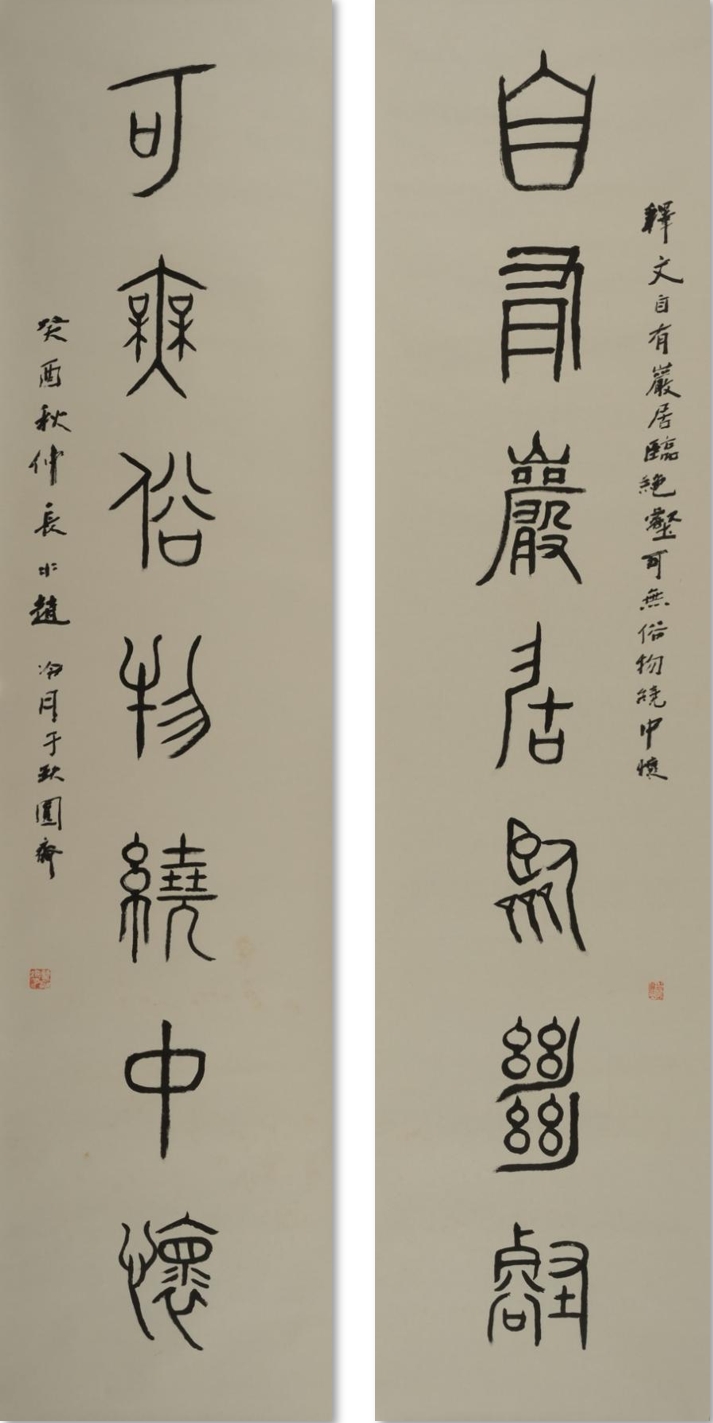 釋文自有巖居臨絶壑可無俗物繞中懷
自有巖居臨絶壑
可無俗物繞中懷
癸酉秋仲長水趙冷月于缺圓齋